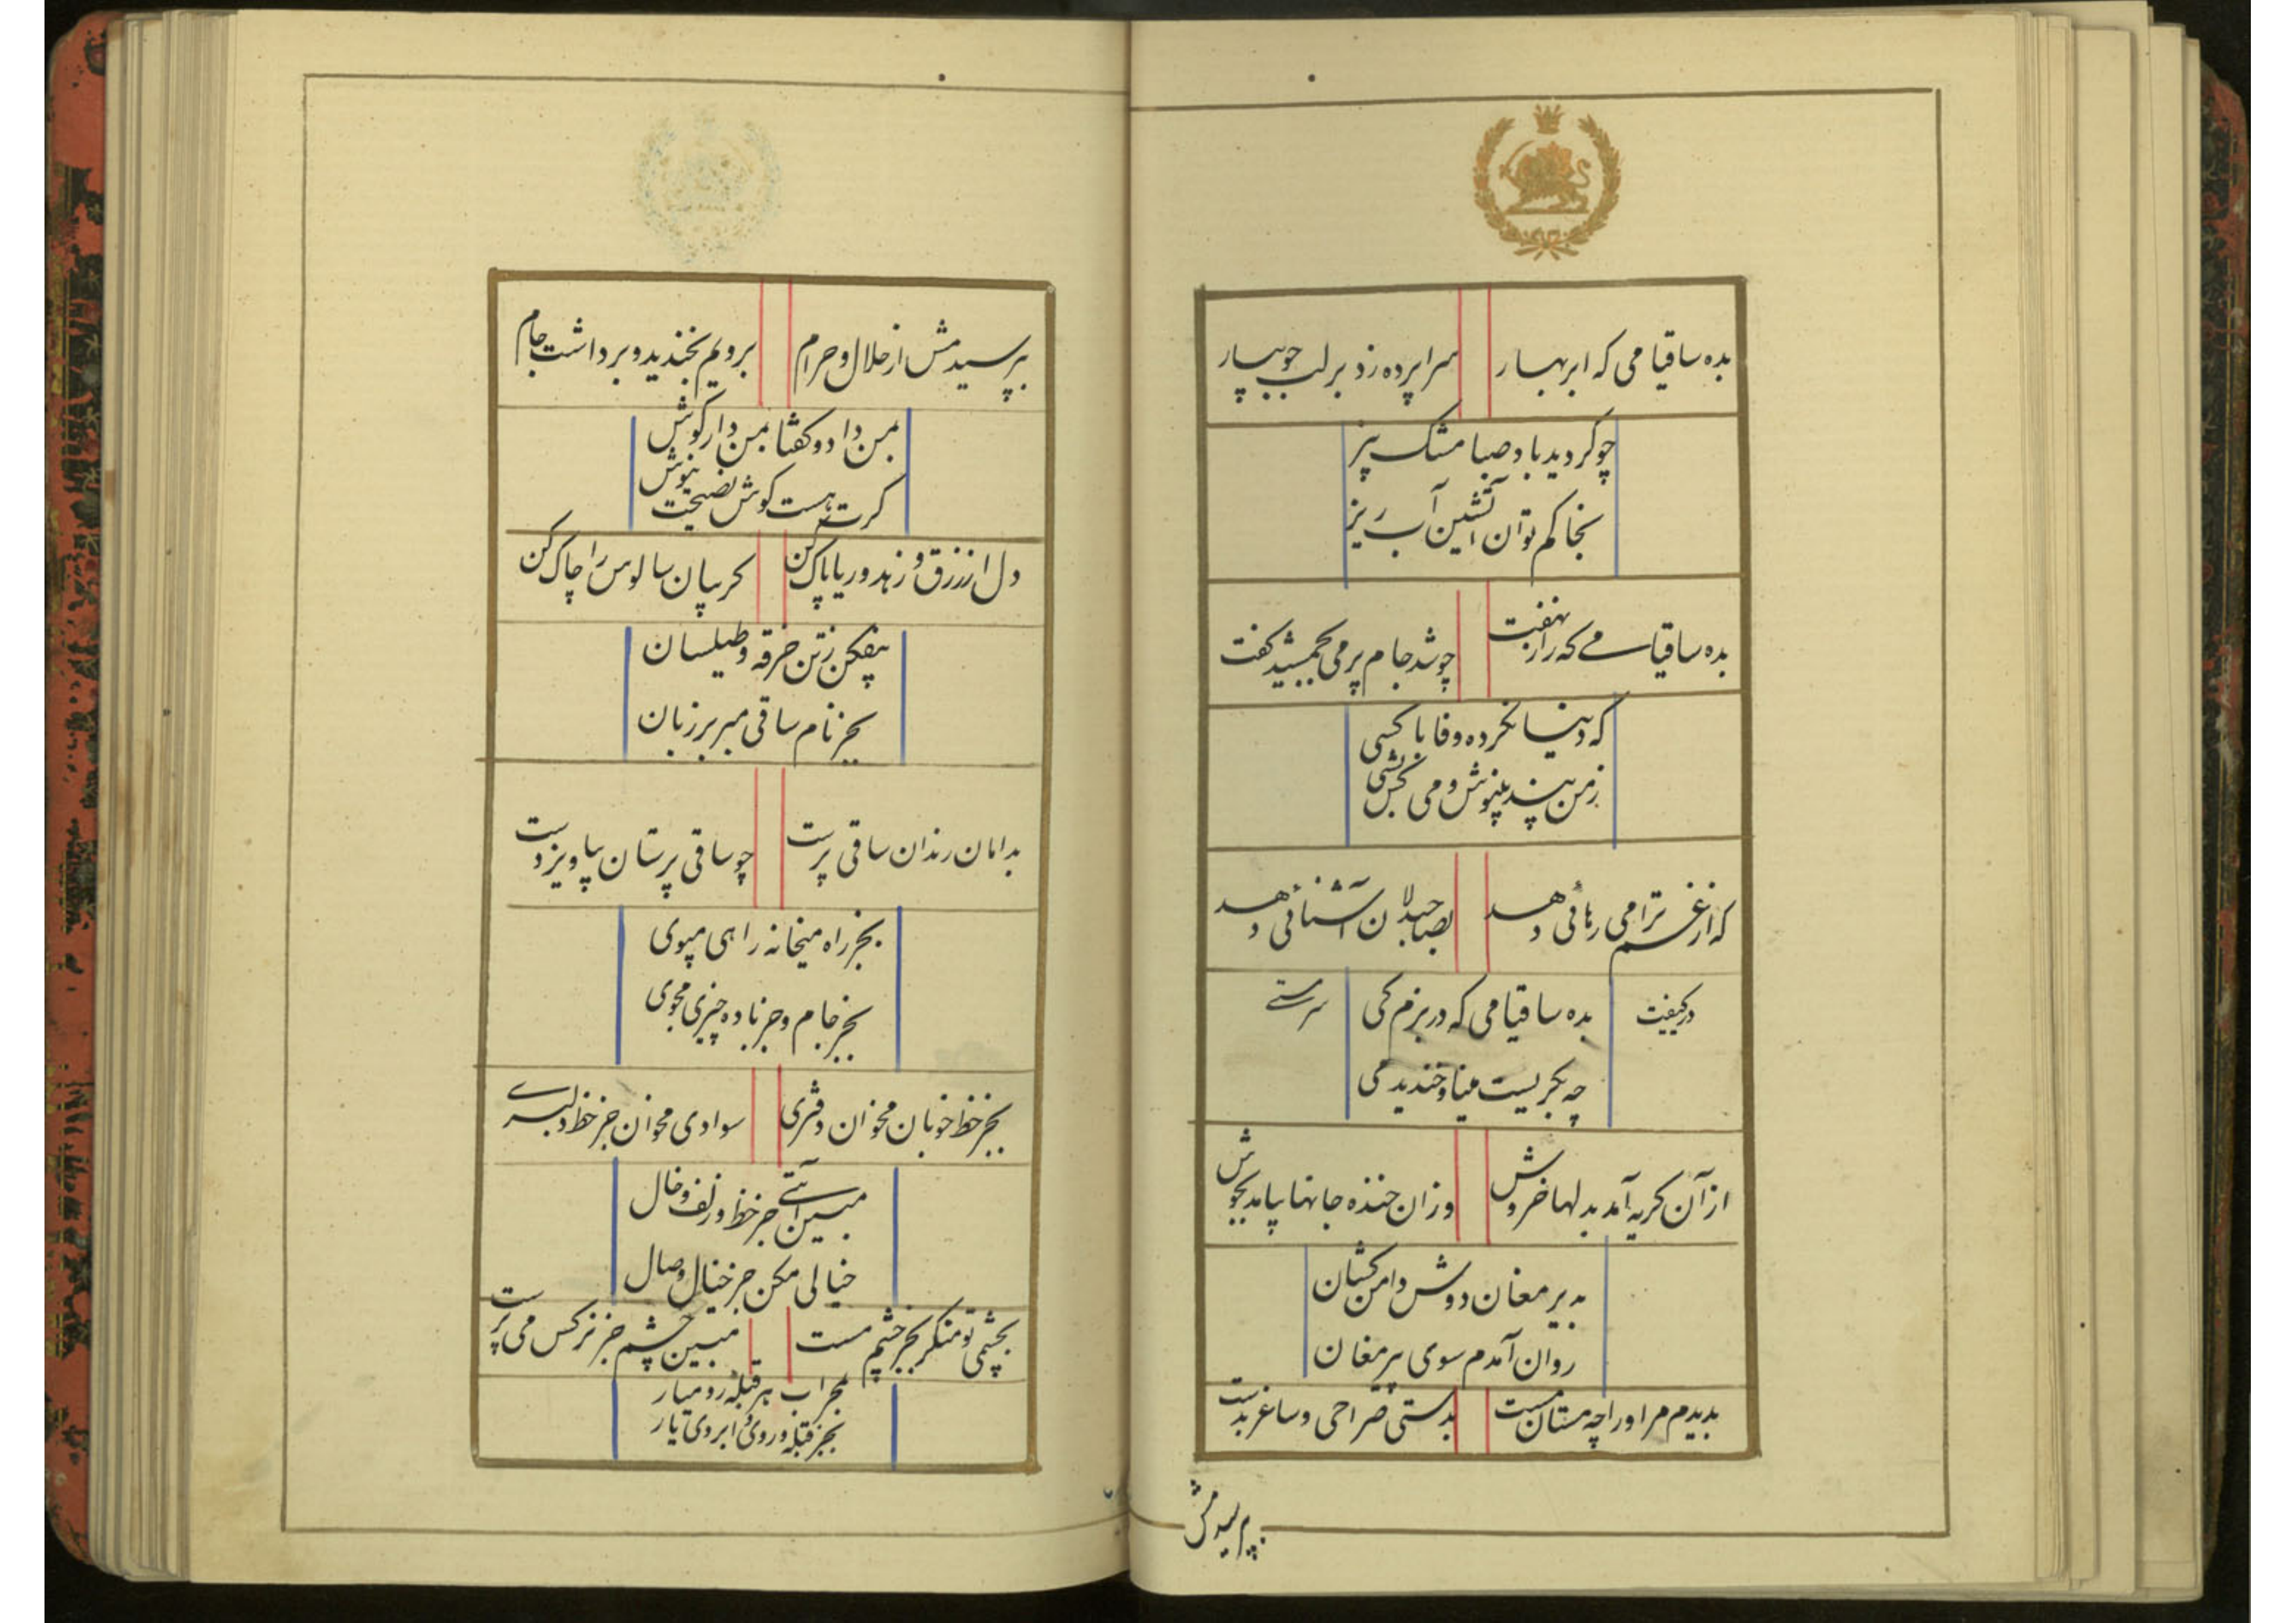 بده ساقیا می که ابر بهار سراپرده زد بر لب جویبار
چو کردید باد صبا مشک بیز
بخاکم توان آتشین آب ریز
بده ساقیا می که راز نهفت چو شد جام پر می بجمشید کفت
که دنیا نکرده وفا با کسی
ز من پند بنیوش و می کش بسی
که از غم ترا می رهائی دهد بصاحبدلان آشنائی دهد
در کیفیت
بده ساقیا می که در بزم کی
سرمستی
چه بکریست مینا و خندید می
از آن کریه آمد بدلها خروش وزان خنده جانها بیامد بجوش
به پیر مغان دوش دامن کشان
روان آمدم سوی پیر مغان
بدیدم مر او را چه مستان مست بدستی صراحی و ساغر بدست
بپرسیدمش
بپرسیدمش از حلال و حرام برویم بخندید و برداشت جام
بمن داد و کفتا بمن دار کوش
کرت هست کوش نصیحت نیوش
دل از زرق و زهد و ریا پاک کن کریبان سالوس را چاک کن
بیفکن ز تن خرقه و طیلسان
بجز نام ساقی مبر بر زبان
بدامان رندان ساقی پرست چو ساقی پرستان بیاویز دست
بجز راه میخانه راهی مپوی
بجز جام و جز باده چیزی مجوی
بجز خط خوبان مخوان دفتری سوادی مخوان جز خط دلبری
مبین آیتی جز خط و زلف و خال
خیالی مکن جز خیال وصال
بچشمی تو منکر بجز چشم مست مبین چشم جز نرکس می پرست
بمحراب هر قبله رو میار
بجز قبله روی ابروی یار